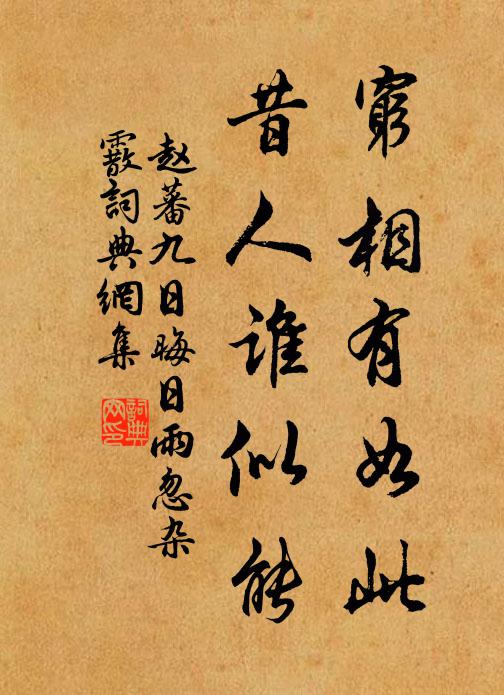 窮相有如此
昔人誰似能
赵蕃九日晦日雨忽杂
霰詞典網集
詞典網印